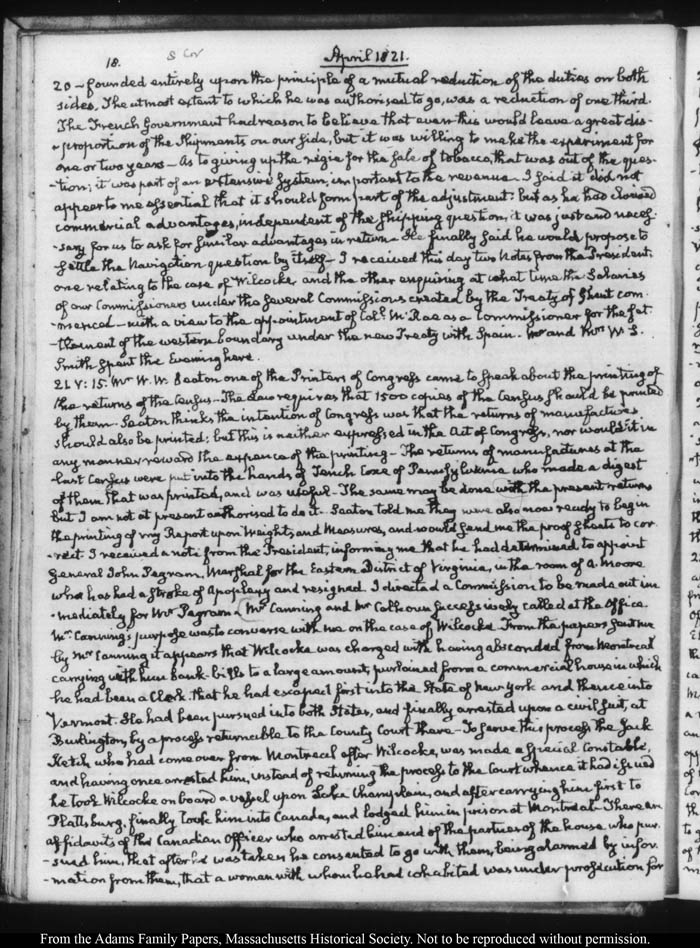 18.
S Cor
April 1821.
20 – founded entirely upon the principle of a mutual reduction of the duties on both
sides. The utmost extent to which he was authorised to go, was a reduction of one third.
The French Government had reason to believe that even this would leave a great dis-
-proportion of the Shipments on our side, but it was willing to make the experiment for
one or two years – As to giving up the régie for the sale of tobacco, that was out of the ques-
-tion; it was part of an extensive System, important to the revenue – I said it did not
appear to me essential that it should form part of the adjustment: but as he had
commercial advantages, independent of the shipping question, it was just and neces-
-sary for us to ask for similar advantages in return – He finally said he would propose to
settle the Navigation question by itself – I received this day two Notes from the President;
one relating to the case of Wilcocke and the other enquiring at what time the Salaries
of our Commissioners under the several Commissions created by the Treaty of Ghent com-
-menced – with a view to the appointment of Coll. McRae as a Commissioner for the set-
-tlement of the western boundary under the new Treaty with Spain. Mr and Mrs W. S.
Smith spent the Evening here.
21. V: 15. Mr W. W. Seaton one of the Printers of Congress came to speak about the printing of
the returns of the Census – The Law requires that 1500 copies of the Census should be printed
by them – Seaton thinks the intention of Congress was that the returns of manufactures
should also be printed: but this is neither expressed in the Act of Congress, nor would it in
any manner reward the expence of the printing – The returns of manufactures at the
last Census were put into the hands of Tench Coxe of Pennsylvania who made a digest
of them that was printed, and was useful – The same may be done with the present returns
but I am not at present authorised to do it – Seaton told me they were also now ready to begin
the printing of my Report upon Weights, and Measures, and would send me the proof sheets to cor-
-rect I received a note from the President, informing me that he had determined to appoint
General John Pegram, Marshal for the Eastern District of Virginia, in the room of A. Moore
who has had a stroke of Apoplexy and resigned. I directed a Commission to be made out im-
-mediately for Mr Pegram – Mr Canning and Mr Calhoun successively called at the Office
Mr Canning's purpose was to converse with me on the case of Wilcocke. From the papers sent me
by Mr Canning it appears that Wilcocke was charged with having absconded from Montreal
carrying with him bank-bills to a large amount, purloined from a commercial house in which
he had been a Clerk. that he had escaped first into the State of New York and thence into
Vermont. He had been pursued into both States, and finally arrested upon a civil suit, at
Burlington, by a process returnable to the County Court there – To serve this process the Jack
Ketch who had come over from Montreal after Wilcocke, was made a special Constable,
and having once arrested him, instead of returning the process to the Court whence it had issued
he took Wilcocke on board a vessel upon Lake Champlain, and after carrying him first to
Plattsburg, finally took him into Canada, and lodged him in prison at Montreal. There are
affidavits of this Canadian Officer who arrested him and of the partners of the house who pur-
-sued him, that after he was taken he consented to go with them, being alarmed by infor-
-mation from them, that a woman with whom he had cohabited was under prosecution for
From the Adams Family Papers, Massachusetts Historical Society. Not to be reproduced without permission.